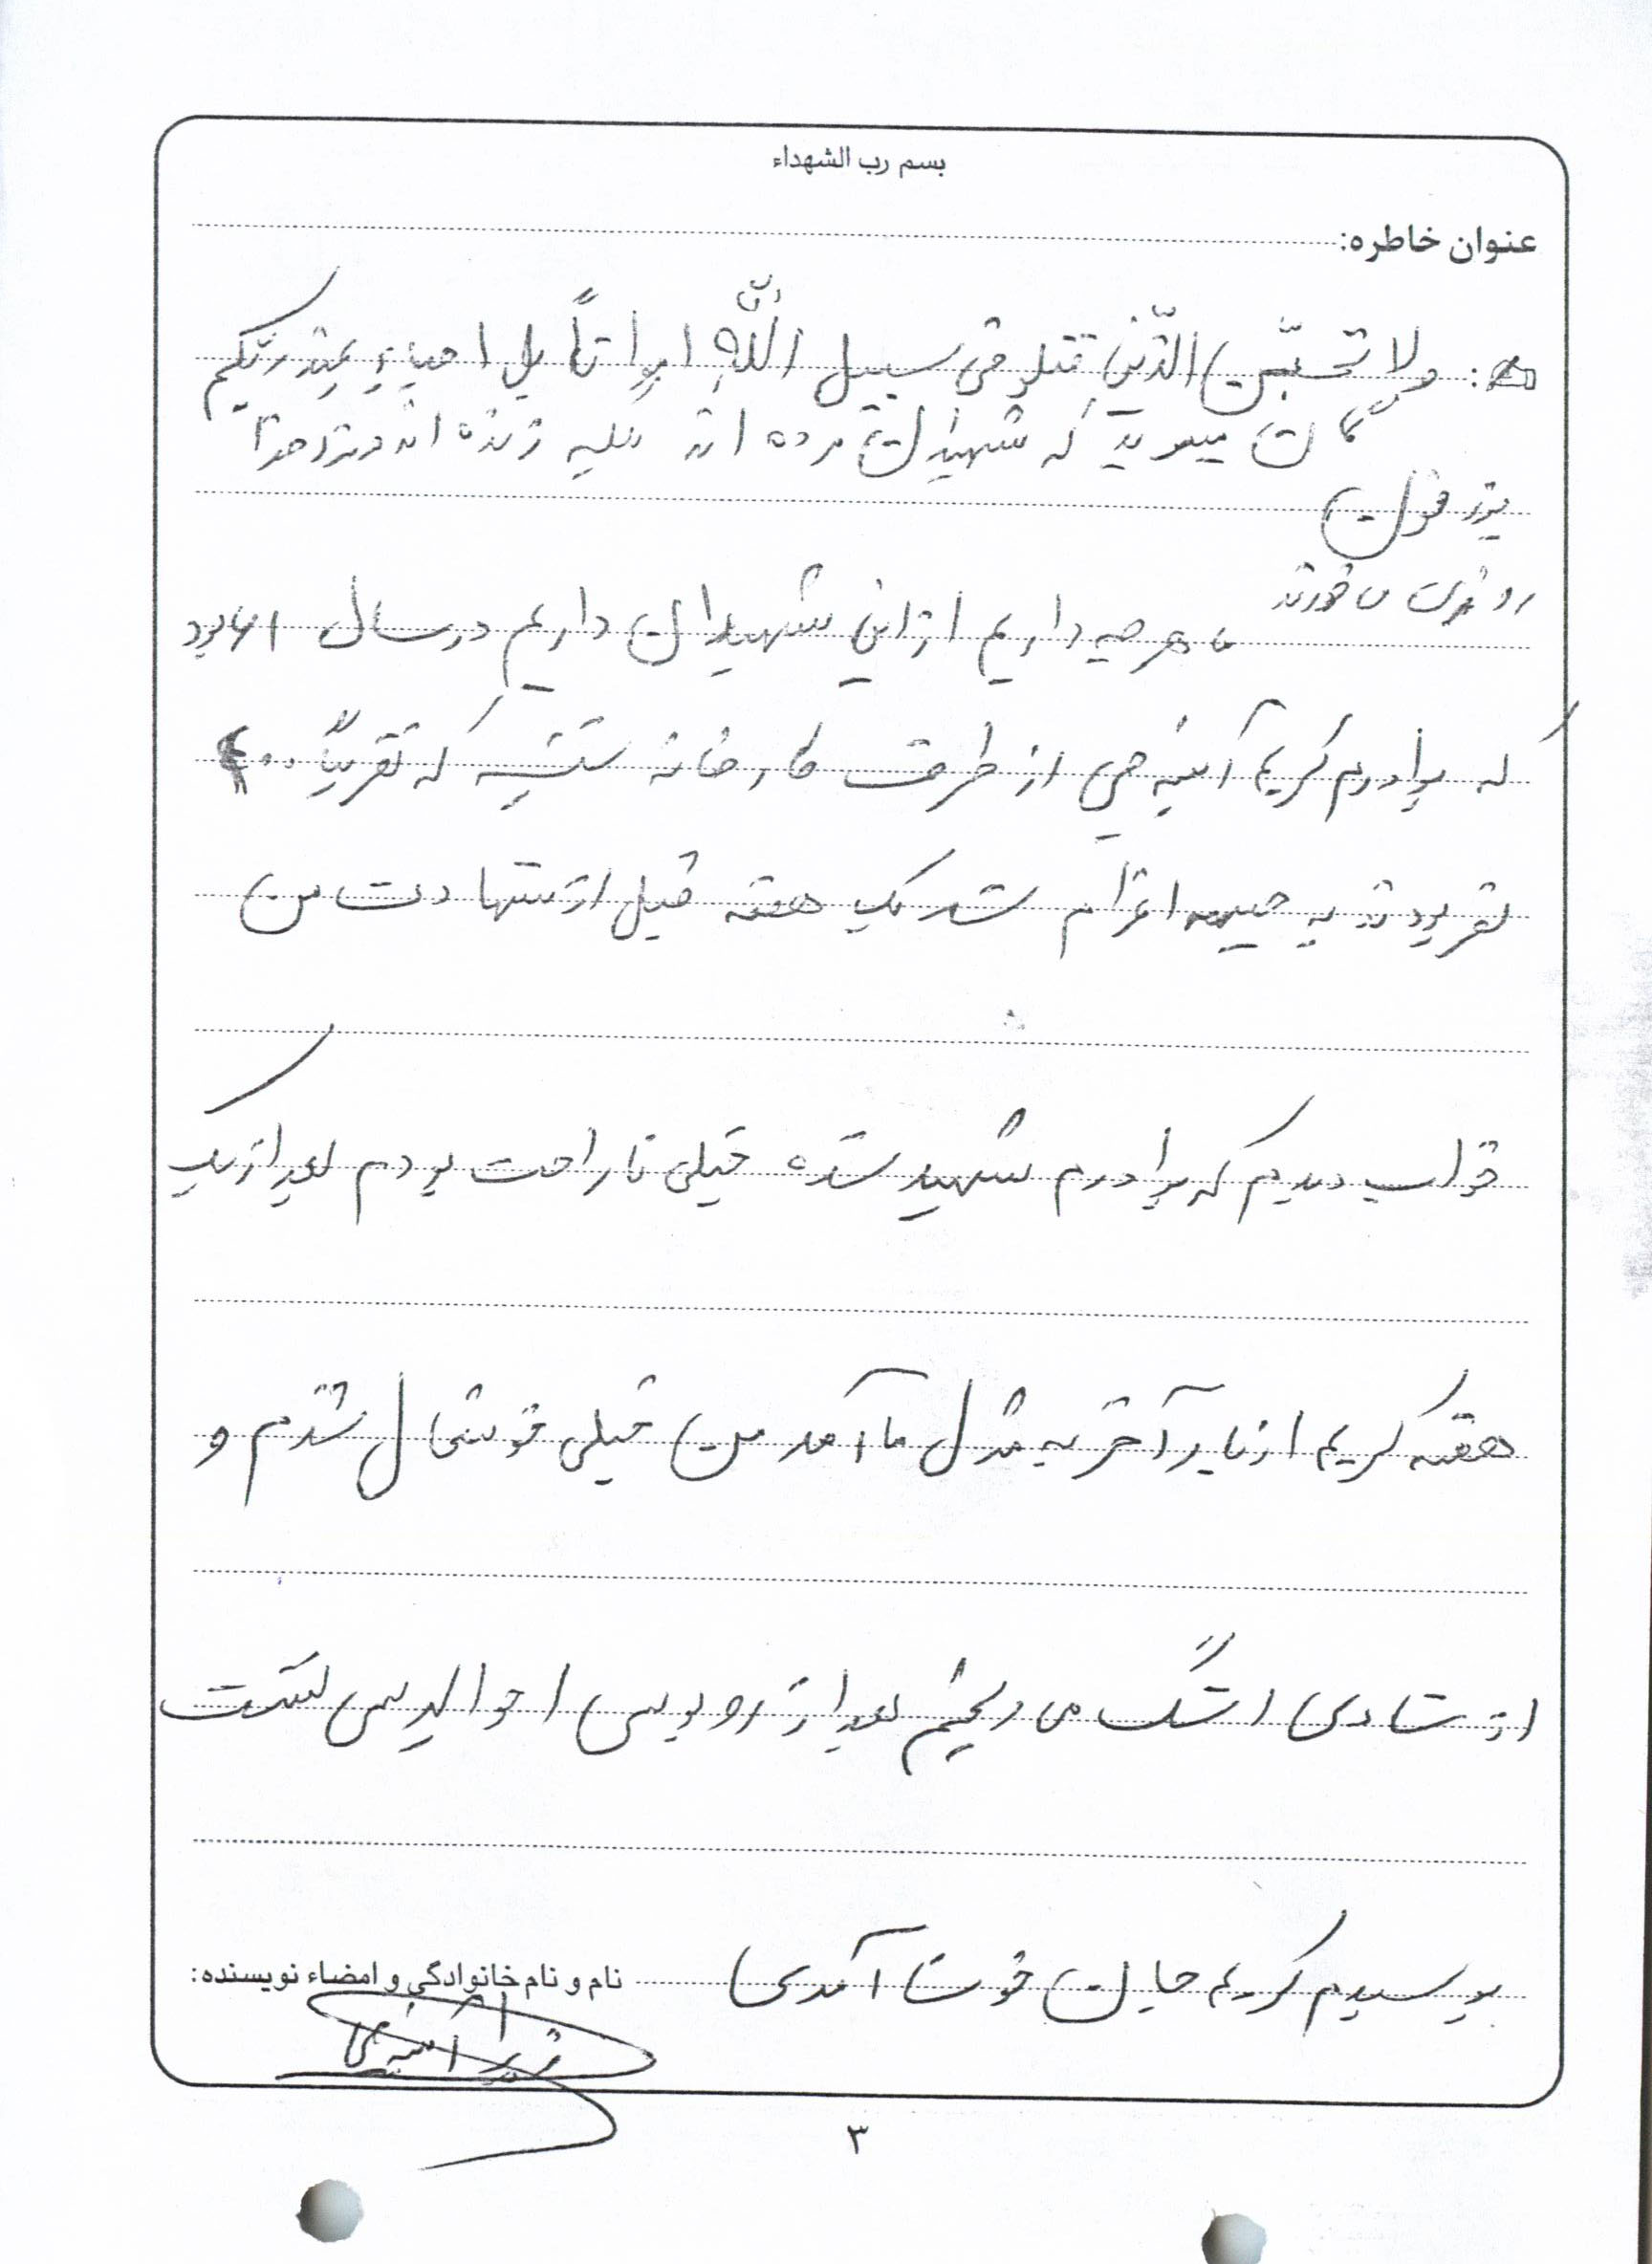 بسم رب الشهداء
عنوان خاطره:
ولا تحسبّن الذّین قتلو فی سبیل اللّهِ امواتاً بل احیاءٍ عِند ربّکم
گمان میبرید که شهیدان مرده اند بلکیه زنده اند ونزد خدا
روزی می خورند
ما هرچه داریم از این شهیدان داریم درسال ۶۱ بود
که برادرم کریم آئینه چی از طرف کارخانه که تقریباً ۲۰۰
نفر بودند به جبهه اعزام شد یک هفته قبل از شهادت من
خواب دیدم که برادرم شهید شده خیلی ناراحت بودم بعد از یک
هفته کریم از بار آخر به منزل ما آمد من خیلی خوشحال شدم و
از شادی اشگ می ریختم بعد از روبوسی احوالپرسی
پرسیدم کریم جان خوش آمدی
نام و نام خانوادگی و امضاء نویسنده:
۳